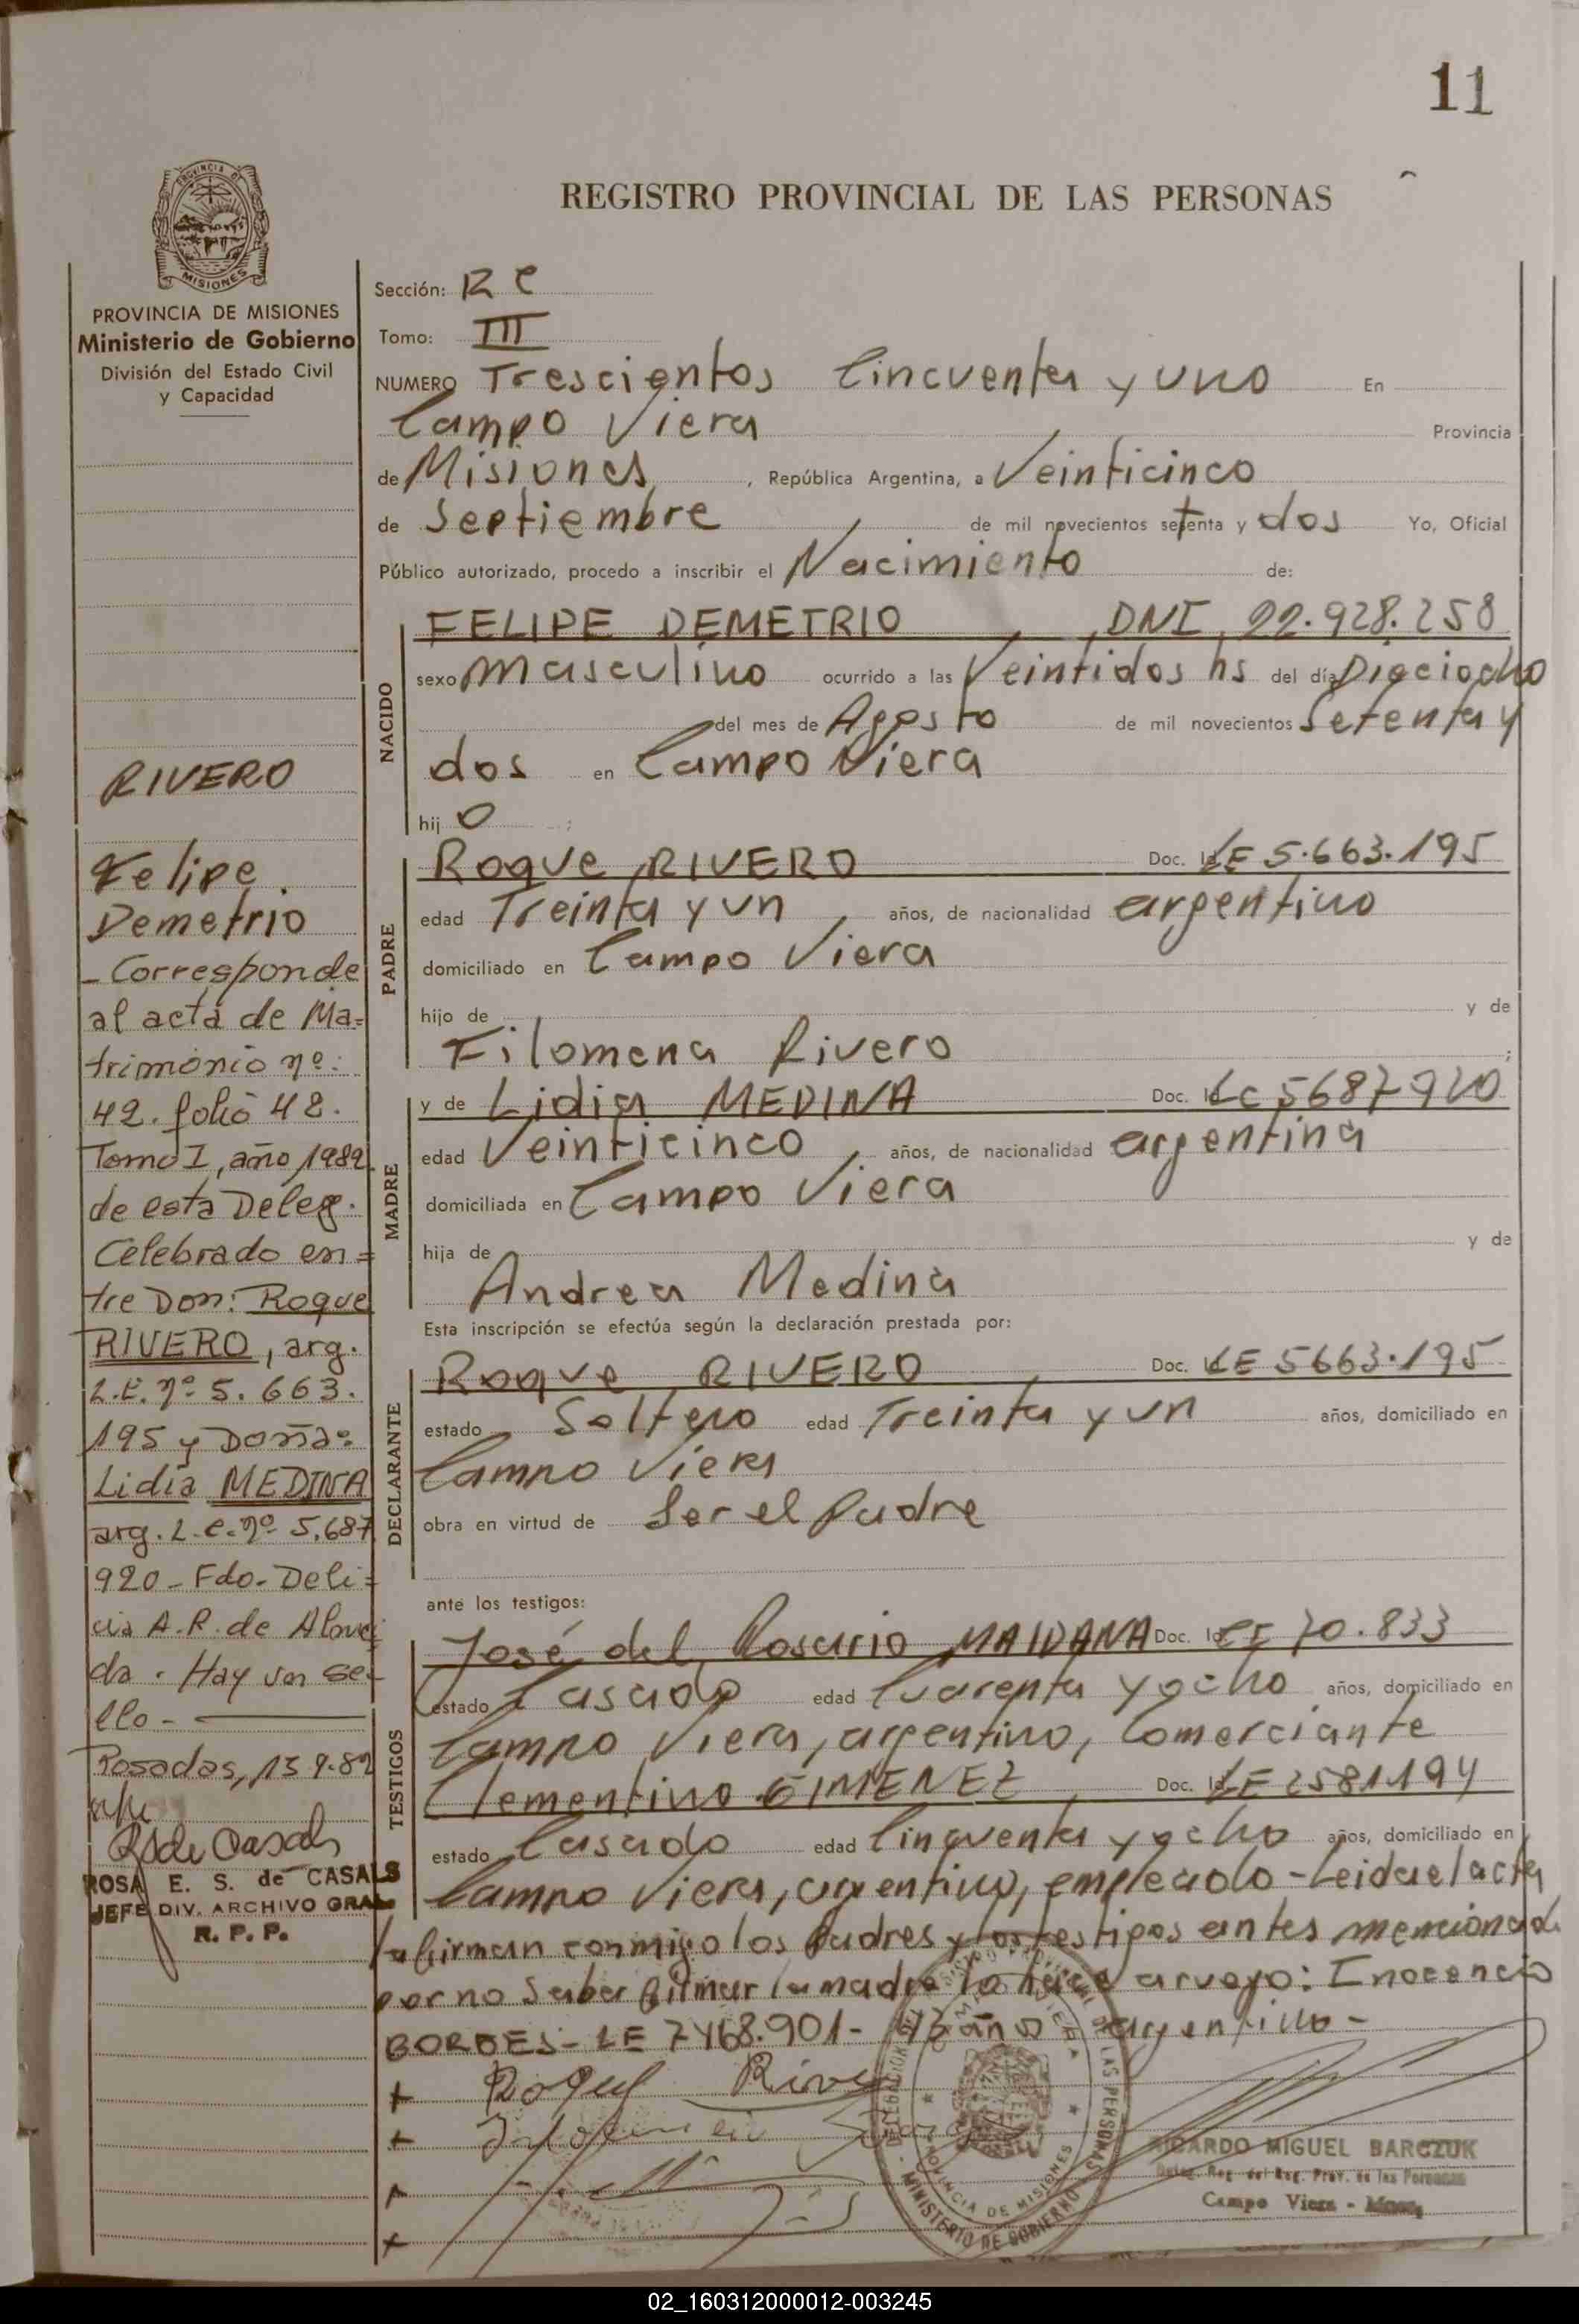 11
REGISTRO PROVINCIAL DE LAS PERSONAS
PROVINCIA DE
MISIONES
PROVINCIA DE MISIONES
Ministerio de Gobierno
División del Estado Civil
y Capacidad
RIVERO
Felipe
Demetrio
- Corresponde
al acta de Ma=
trimonio nº:
42. folio 42.
Tomo I, año 1982
de esta Deleg.
Celebrado en=
tre Don: Roque
RIVERO, arg.
L.E. nº 5.663.
195 y Doña:
Lidia MEDINA
arg. L.C. nº 5.687
920 - Fdo. Deli=
cia A.R. de
da. Hay un se=
llo -
Posadas, 13.9.82
R S de Casals
ROSA E. S. de CASALS
JEFE DIV. ARCHIVO GRAL
R. P. P.
Sección: R C
Tomo: III
NUMERO Trescientos Cincuenta y uno En
Campo Viera Provincia
de Misiones, República Argentina, a Veinticinco
de Septiembre de mil novecientos setenta y dos Yo, Oficial
Público autorizado, procedo a inscribir el Nacimiento de:
NACIDO
FELIPE DEMETRIO, DNI, 22.928.258
sexo masculino ocurrido a las Veintidos hs del día Dieciocho
del mes de Agosto de mil novecientos Setenta y
dos en Campo Viera
hij o ;
PADRE
Roque RIVERO Doc. Id LE 5.663.195
edad Treinta y un, años, de nacionalidad argentino
domiciliado en Campo Viera
hijo de y de
Filomena Rivero ;
MADRE
y de Lidia MEDINA Doc. Id LC 5687920
edad Veinticinco, años, de nacionalidad argentina
domiciliada en Campo Viera
hija de y de
Andrea Medina
Esta inscripción se efectúa según la declaración prestada por:
DECLARANTE
Roque RIVERO, Doc. Id LE 5663.195
estado Soltero edad Treinta y un años, domiciliado en
Campo Viera
obra en virtud de Ser el Padre
ante los testigos:
TESTIGOS
José del Rosario MAIDANA Doc. Id 70.833
estado Casado edad Cuarenta y ocho años, domiciliado en
Campo Viera, argentino, Comerciante
Clementino GIMENEZ, Doc. Id LE 2581194
estado Casado edad Cincuenta y ocho años, domiciliado en
Campo Viera, argentino, empleado - Leida el acta
la firman conmigo los Padres y los testigos antes mencionad
por no saber firmar la madre lo hace a ruego: Inocencio
BORGES - LE 7468.901 - 43 años argentino -
+ Roque Rivero
+
+
+
DELEGACION DEL REGISTRO PROVINCIAL DE LAS PERSONAS
CAMPO VIERA
PROVINCIA DE MISIONES
MINISTERIO DE GOBIERNO
RICARDO MIGUEL BARCZUK
Deleg. Reg. del Reg. Prov. de las Personas
Campo Viera - Mnes.
02_160312000012-003245